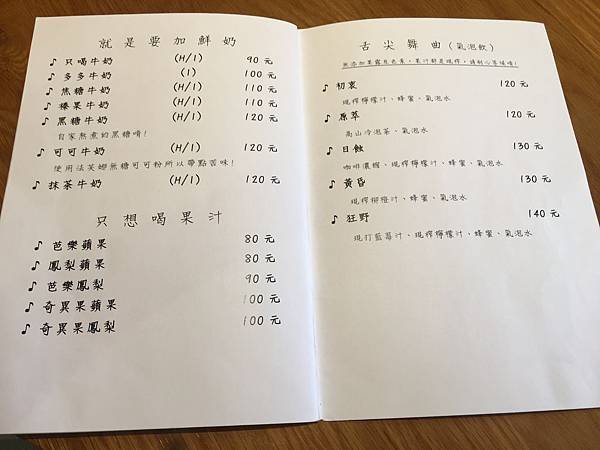 就是要加鮮奶
♪ 只喝牛奶 (H/I) 90 元
♪ 多多牛奶 (I) 100 元
♪ 焦糖牛奶 (H/I) 110 元
♪ 榛果牛奶 (H/I) 110 元
♪ 黑糖牛奶 (H/I) 120 元
自家熬煮的黑糖唷!
♪ 可可牛奶 (H/I) 120 元
使用法芙娜無糖可可粉所以帶點苦味!
♪ 抹茶牛奶 (H/I) 120 元
只想喝果汁
♪ 芭樂蘋果 80 元
♪ 鳳梨蘋果 80 元
♪ 芭樂鳳梨 90 元
♪ 奇異果蘋果 100 元
♪ 奇異果鳳梨 100 元
舌尖舞曲(氣泡飲)
無添加果露及色素,果汁都是現榨,請耐心等候唷!
♪ 初衷 120 元
現榨檸檬汁、蜂蜜、氣泡水
♪ 原萃 120 元
高山冷泡茶、氣泡水
♪ 日蝕 130 元
咖啡濃縮、現榨檸檬汁、蜂蜜、氣泡水
♪ 黃昏 130 元
現榨柳橙汁、蜂蜜、氣泡水
♪ 狂野 140 元
現打藍莓汁、現榨檸檬汁、蜂蜜、氣泡水